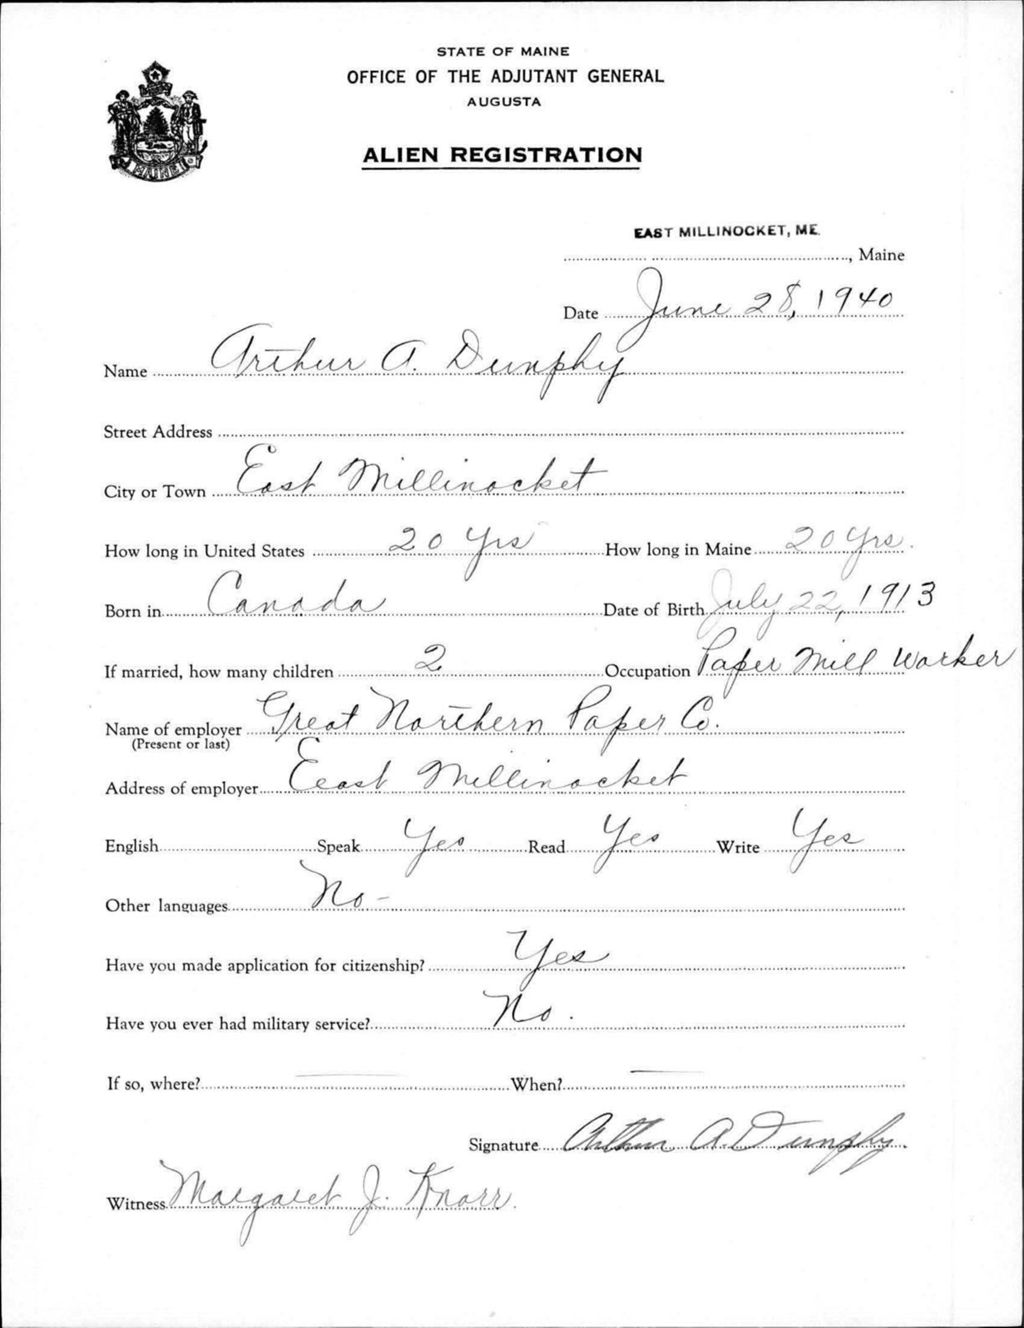 STATE OF MAINE
OFFICE OF THE ADJUTANT GENERAL
AUGUSTA
ALIEN REGISTRATION
MAINE
EAST MILLINOCKET, ME.
, Maine
Date June 28, 1940
Name Arthur A. Dunphy
Street Address
City or Town East Millinocket
How long in United States 20 Yrs How long in Maine 20 Yrs.
Born in Canada Date of Birth July 22, 1913
If married, how many children 2 Occupation Paper Mill Worker
Name of employer Great Northern Paper Co.
(Present or last)
Address of employer East Millinocket
English Speak Yes Read Yes Write Yes
Other languages No -
Have you made application for citizenship? Yes
Have you ever had military service? No.
If so, where? — When? —
Signature Arthur A. Dunphy
Witness Margaret J. Knarr